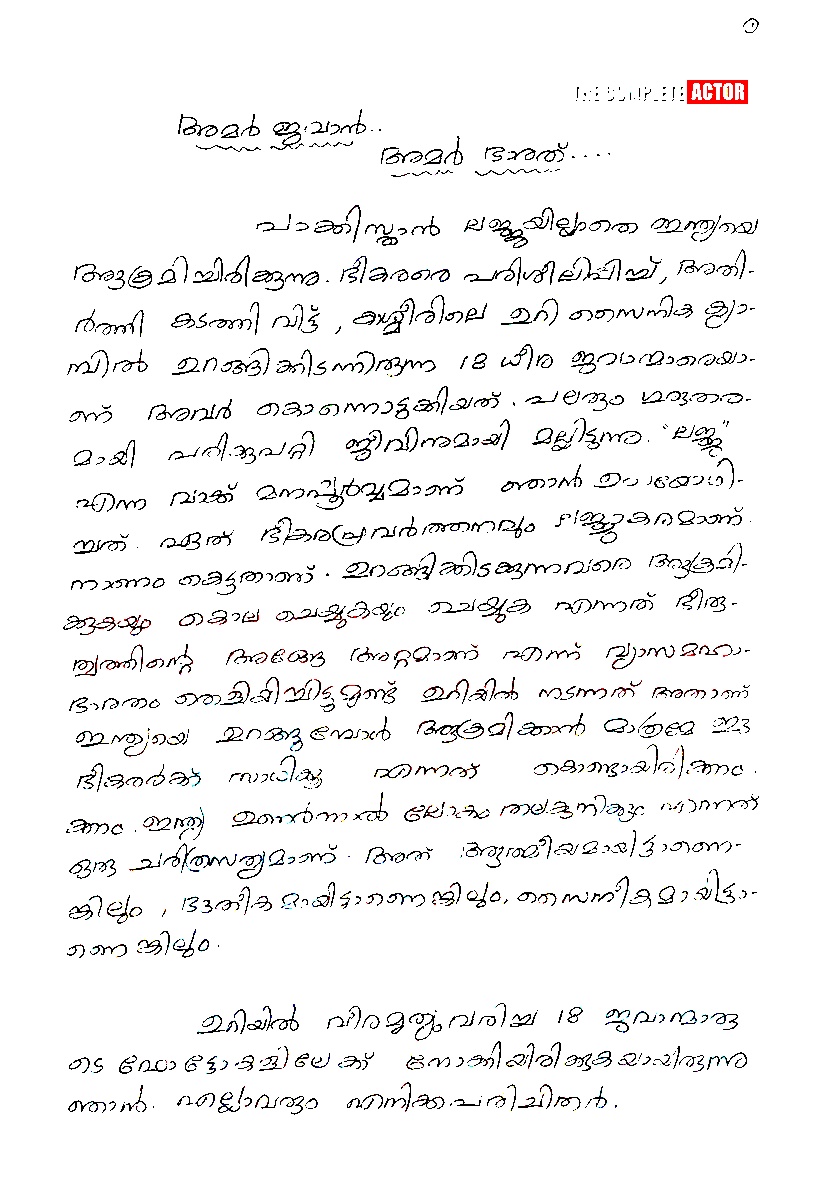 1
THE COMPLETE ACTOR
അമർ ജവാൻ..
അമർ ഭാരത്....
പാക്കിസ്ഥാൻ ലജ്ജയില്ലാതെ ഇന്ത്യയെ
ആക്രമിച്ചിരിക്കുന്നു. ഭീകരരെ പരിശീലിപ്പിച്ച്, അതി-
ർത്തി കടത്തി വിട്ട്, കാശ്മീരിലെ ഉറി സൈനിക ക്യാ-
മ്പിൽ ഉറങ്ങിക്കിടന്നിരുന്ന 18 ധീര ജവാന്മാരെയാ-
ണ് അവർ കൊന്നൊടുക്കിയത്. പലരും ഗുരുതര-
മായി പരിക്കുപറ്റി ജീവിനുമായി മല്ലിടുന്നു. "ലജ്ജ"
എന്ന വാക്ക് മനപ്പൂർവ്വമാണ് ഞാൻ ഉപയോഗി-
ച്ചത്. ഏത് ഭീകരപ്രവർത്തനവും ലജ്ജാകരമാണ്.
നാണം കെട്ടതാണ്. ഉറങ്ങിക്കിടക്കുന്നവരെ ആക്രമി-
ക്കുകയും കൊല ചെയ്യുകയും ചെയ്യുക എന്നത് ഭീരു-
ത്വത്തിന്റെ അങ്ങേ അറ്റമാണ് എന്ന് വ്യാസമഹാ-
ഭാരതം തെളിയിച്ചിട്ടുമുണ്ട് ഉറിയിൽ നടന്നത് അതാണ്
ഇന്ത്യയെ ഉറങ്ങുമ്പോൾ ആക്രമിക്കാൻ മാത്രമേ ഈ
ഭീകരർക്ക് സാധിക്കൂ എന്നത് കൊണ്ടായിരിക്കണം.
ക്കണം. ഇന്ത്യ ഉണർന്നാൽ ലോകം തലകുനിക്കും എന്നത്
ഒരു ചരിത്രസത്യമാണ്. അത് ആത്മീയമായിട്ടാണെ-
ങ്കിലും, ഭൗതികമായിട്ടാണെങ്കിലും, സൈനികമായിട്ടാ-
ണെങ്കിലും.
ഉറിയിൽ വീരമൃത്യു വരിച്ച 18 ജവാന്മാരു
ടെ ഫോട്ടോകളിലേക്ക് നോക്കിയിരിക്കുകയായിരുന്നു
ഞാൻ. എല്ലാവരും എനിക്കപരിചിതർ.